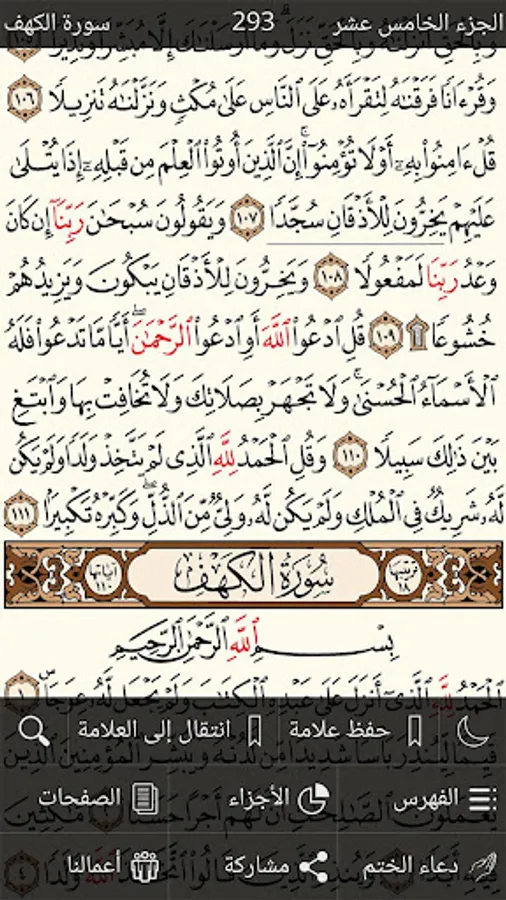 الجزء الخامس عشر 293 سورة الكهف
وَبِالْحَقِّ أَنزَلْنَاهُ وَبِالْحَقِّ نَزَلَ وَمَا أَرْسَلْنَاكَ إِلَّا مُبَشِّرًا وَنَذِيرًا ١٠٥
وَقُرْءَانًا فَرَقْنَٰهُ لِتَقْرَأَهُۥ عَلَى ٱلنَّاسِ عَلَىٰ مُكْثٍ وَنَزَّلْنَٰهُ تَنزِيلًا ١٠٦
قُلْ ءَامِنُوا۟ بِهِۦٓ أَوْ لَا تُؤْمِنُوٓا۟ ۚ إِنَّ ٱلَّذِينَ أُوتُوا۟ ٱلْعِلْمَ مِن قَبْلِهِۦٓ إِذَا يُتْلَىٰ
عَلَيْهِمْ يَخِرُّونَ لِلْأَذْقَانِ سُجَّدًا ١٠٧ وَيَقُولُونَ سُبْحَٰنَ رَبِّنَآ إِن كَانَ
وَعْدُ رَبِّنَا لَمَفْعُولًا ١٠٨ وَيَخِرُّونَ لِلْأَذْقَانِ يَبْكُونَ وَيَزِيدُهُمْ
خُشُوعًا ۩ ١٠٩ قُلِ ٱدْعُوا۟ ٱللَّهَ أَوِ ٱدْعُوا۟ ٱلرَّحْمَٰنَ ۖ أَيًّا مَّا تَدْعُوا۟ فَلَهُ
ٱلْأَسْمَآءُ ٱلْحُسْنَىٰ ۚ وَلَا تَجْهَرْ بِصَلَاتِكَ وَلَا تُخَافِتْ بِهَا وَٱبْتَغِ
بَيْنَ ذَٰلِكَ سَبِيلًا ١١٠ وَقُلِ ٱلْحَمْدُ لِلَّهِ ٱلَّذِى لَمْ يَتَّخِذْ وَلَدًا وَلَمْ يَكُن
لَّهُۥ شَرِيكٌ فِى ٱلْمُلْكِ وَلَمْ يَكُن لَّهُۥ وَلِىٌّ مِّنَ ٱلذُّلِّ ۖ وَكَبِّرْهُ تَكْبِيرًۢا ١١١
ترتيبها ١٨ سُورَةُ الكَهْفِ آياتها ١١٠
بِسْمِ ٱللَّهِ ٱلرَّحْمَٰنِ ٱلرَّحِيمِ
ٱلْحَمْدُ لِلَّهِ ٱلَّذِىٓ أَنزَلَ عَلَىٰ عَبْدِهِ ٱلْكِتَٰبَ وَلَمْ يَجْعَل لَّهُۥ عِوَجَا ۜ ١
حفظ علامة انتقال إلى العلامة
قَيِّمًا لِّيُنذِرَ بَأْسًا شَدِيدًا مِّن لَّدُنْهُ وَيُبَشِّرَ ٱلْمُؤْمِنِينَ ٱلَّذِينَ
الفهرس الأجزاء الصفحات
يَعْمَلُونَ ٱلصَّٰلِحَٰتِ أَنَّ لَهُمْ أَجْرًا حَسَنًا ٢ مَّٰكِثِينَ
دعاء الختم مشاركة أعمالنا